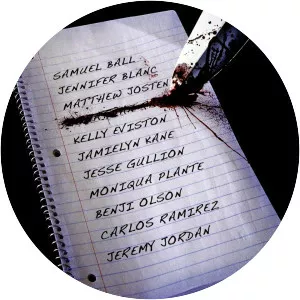 SAMUEL BALL
JENNIFER BLANC
MATTHEW JOSTEN
KELLY EVISTON
JAMIELYN KANE
JESSE GULLION
MONIQUA PLANTE
BENJI OLSON
CARLOS RAMIREZ
JEREMY JORDAN